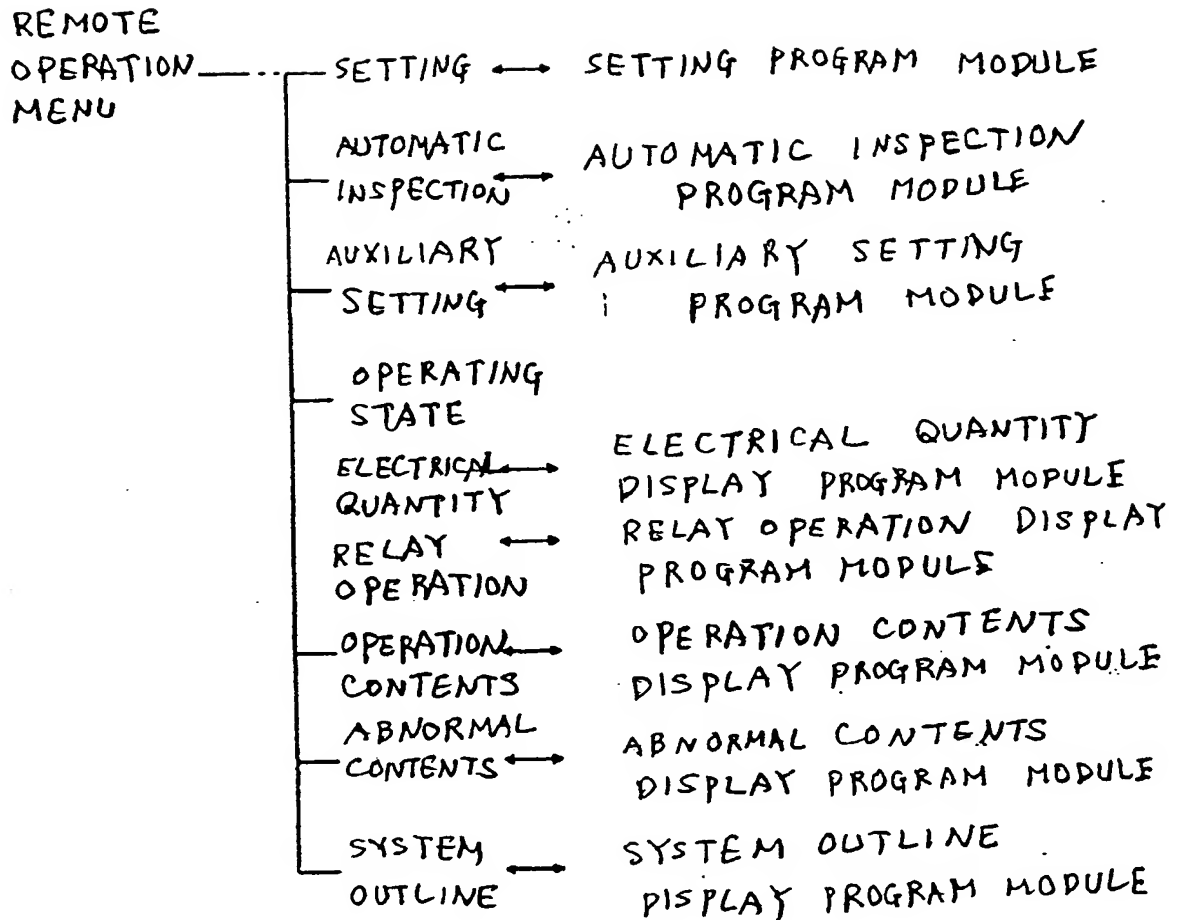 REMOTE
OPERATION
MENU
SETTING SETTING PROGRAM MODULE
AUTOMATIC
INSPECTION
AUTOMATIC INSPECTION
PROGRAM MODULE
AUXILIARY
SETTING
AUXILIARY SETTING
PROGRAM MODULE
OPERATING
STATE
ELECTRICAL
QUANTITY
ELECTRICAL QUANTITY
DISPLAY PROGRAM MODULE
RELAY
OPERATION
RELAY OPERATION DISPLAY
PROGRAM MODULE
OPERATION
CONTENTS
OPERATION CONTENTS
DISPLAY PROGRAM MODULE
ABNORMAL
CONTENTS
ABNORMAL CONTENTS
DISPLAY PROGRAM MODULE
SYSTEM
OUTLINE
SYSTEM OUTLINE
DISPLAY PROGRAM MODULE